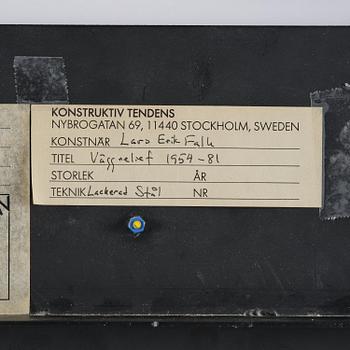 KONSTRUKTIV TENDENS
NYBROGATAN 69, 11440 STOCKHOLM, SWEDEN
KONSTNÄR Lars Erik Falk
TITEL Väggrelief 1954-81
STORLEK ÅR
TEKNIK Lackered Stål NR
N